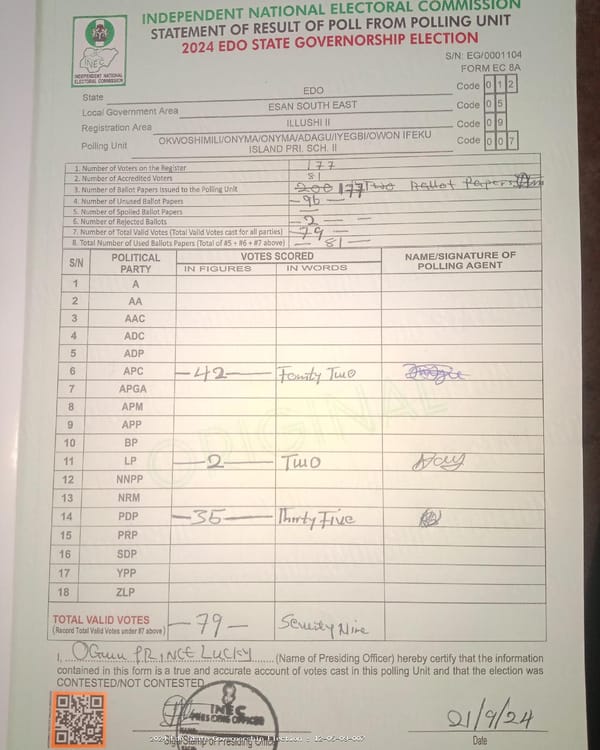 INDEPENDENT NATIONAL ELECTORAL COMMISSION
STATEMENT OF RESULT OF POLL FROM POLLING UNIT
2024 EDO STATE GOVERNORSHIP ELECTION
INEC
INDEPENDENT NATIONAL
ELECTORAL COMMISSION
S/N: EG/0001104
FORM EC 8A
State EDO Code 0 1 2
Local Government Area ESAN SOUTH EAST Code 0 5
Registration Area ILLUSHI II Code 0 9
Polling Unit OKWOSHIMILI/ONYMA/ONYMA/ADAGU/IYEGBI/OWON IFEKU ISLAND PRI. SCH. II Code 0 0 7
1. Number of Voters on the Register 177
2. Number of Accredited Voters 81
3. Number of Ballot Papers Issued to the Polling Unit 200 177 Two Ballot Papers
4. Number of Unused Ballot Papers -96-
5. Number of Spoiled Ballot Papers —
6. Number of Rejected Ballots -2- —
7. Number of Total Valid Votes (Total Valid Votes cast for all parties) 79 —
8. Total Number of Used Ballots Papers (Total of #5 + #6 + #7 above) — 81 —
S/N POLITICAL PARTY VOTES SCORED NAME/SIGNATURE OF POLLING AGENT
IN FIGURES IN WORDS
1 A
2 AA
3 AAC
4 ADC
5 ADP
6 APC -42- Fourty Two
7 APGA
8 APM
9 APP
10 BP
11 LP -2- Two
12 NNPP
13 NRM
14 PDP -35- Thirty Five
15 PRP
16 SDP
17 YPP
18 ZLP
ORIGINAL
TOTAL VALID VOTES -79- Seventy Nine
(Record Total Valid Votes under #7 above)
I, OGUN PRINCE LUCKY (Name of Presiding Officer) hereby certify that the information
contained in this form is a true and accurate account of votes cast in this polling Unit and that the election was
CONTESTED/NOT CONTESTED
INEC
PRESIDING OFFICER
21/9/24
Sign/Stamp of Presiding Office
Date